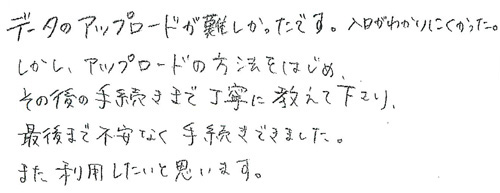 データのアップロードが難しかったです。入口がわかりにくかった。
しかし、アップロードの方法をはじめ、
その後の手続きまで丁寧に教えて下さり、
最後まで不安なく手続きできました。
また利用したいと思います。